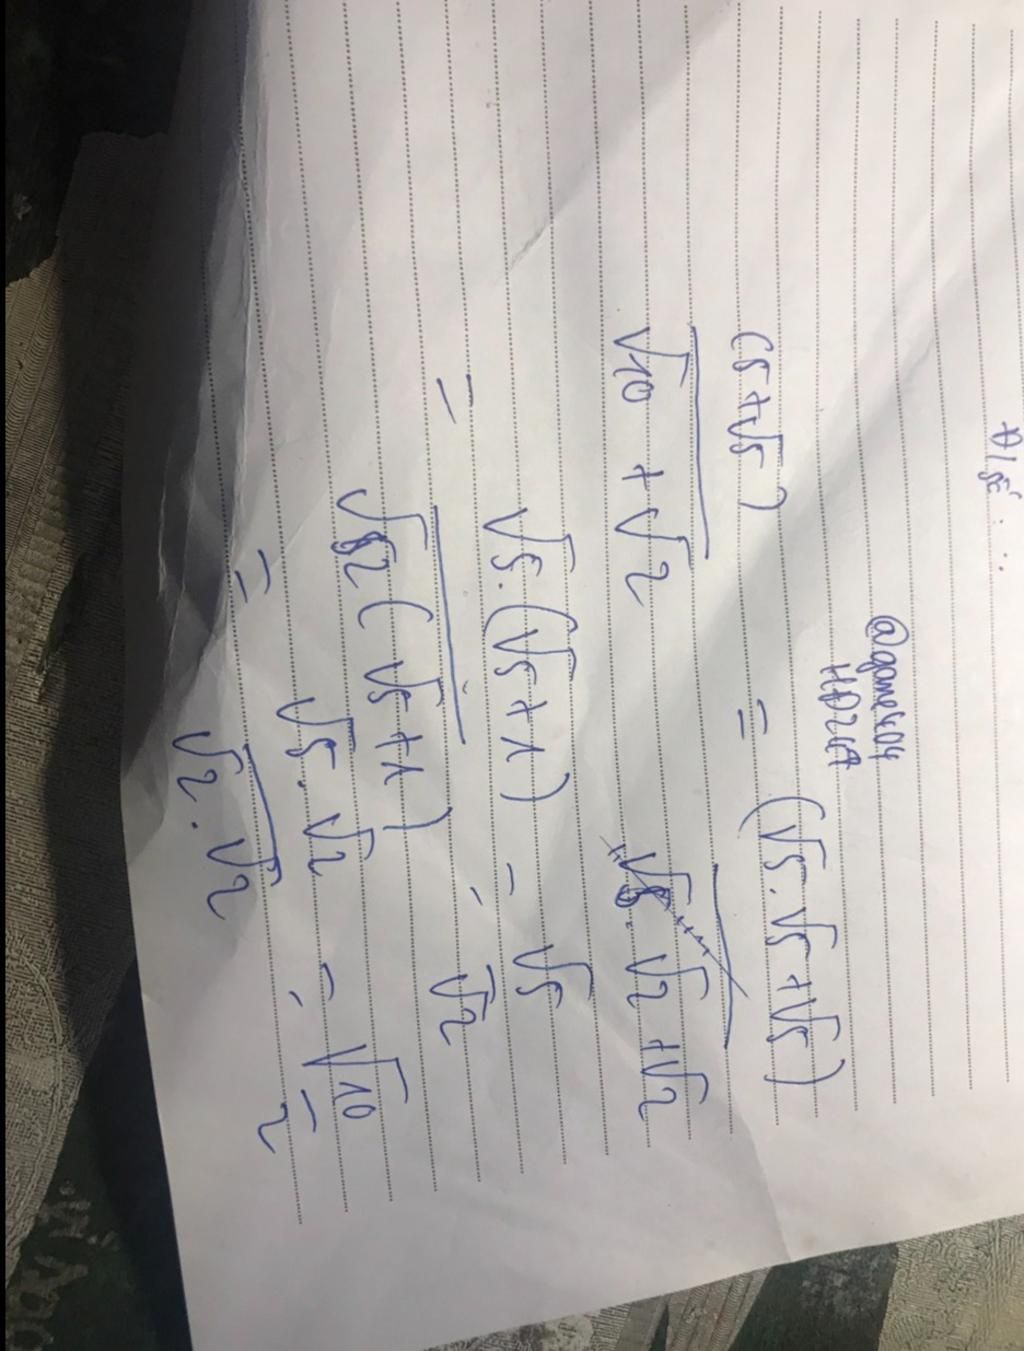 @game404
(5+√5) / (√10 + √2) = (√5.√5+√5) / (√5.√2+√2)
= √5.(√5+1) / √2(√5+1) = √5 / √2
= √5.√2 / √2.√2 = √10 / 2